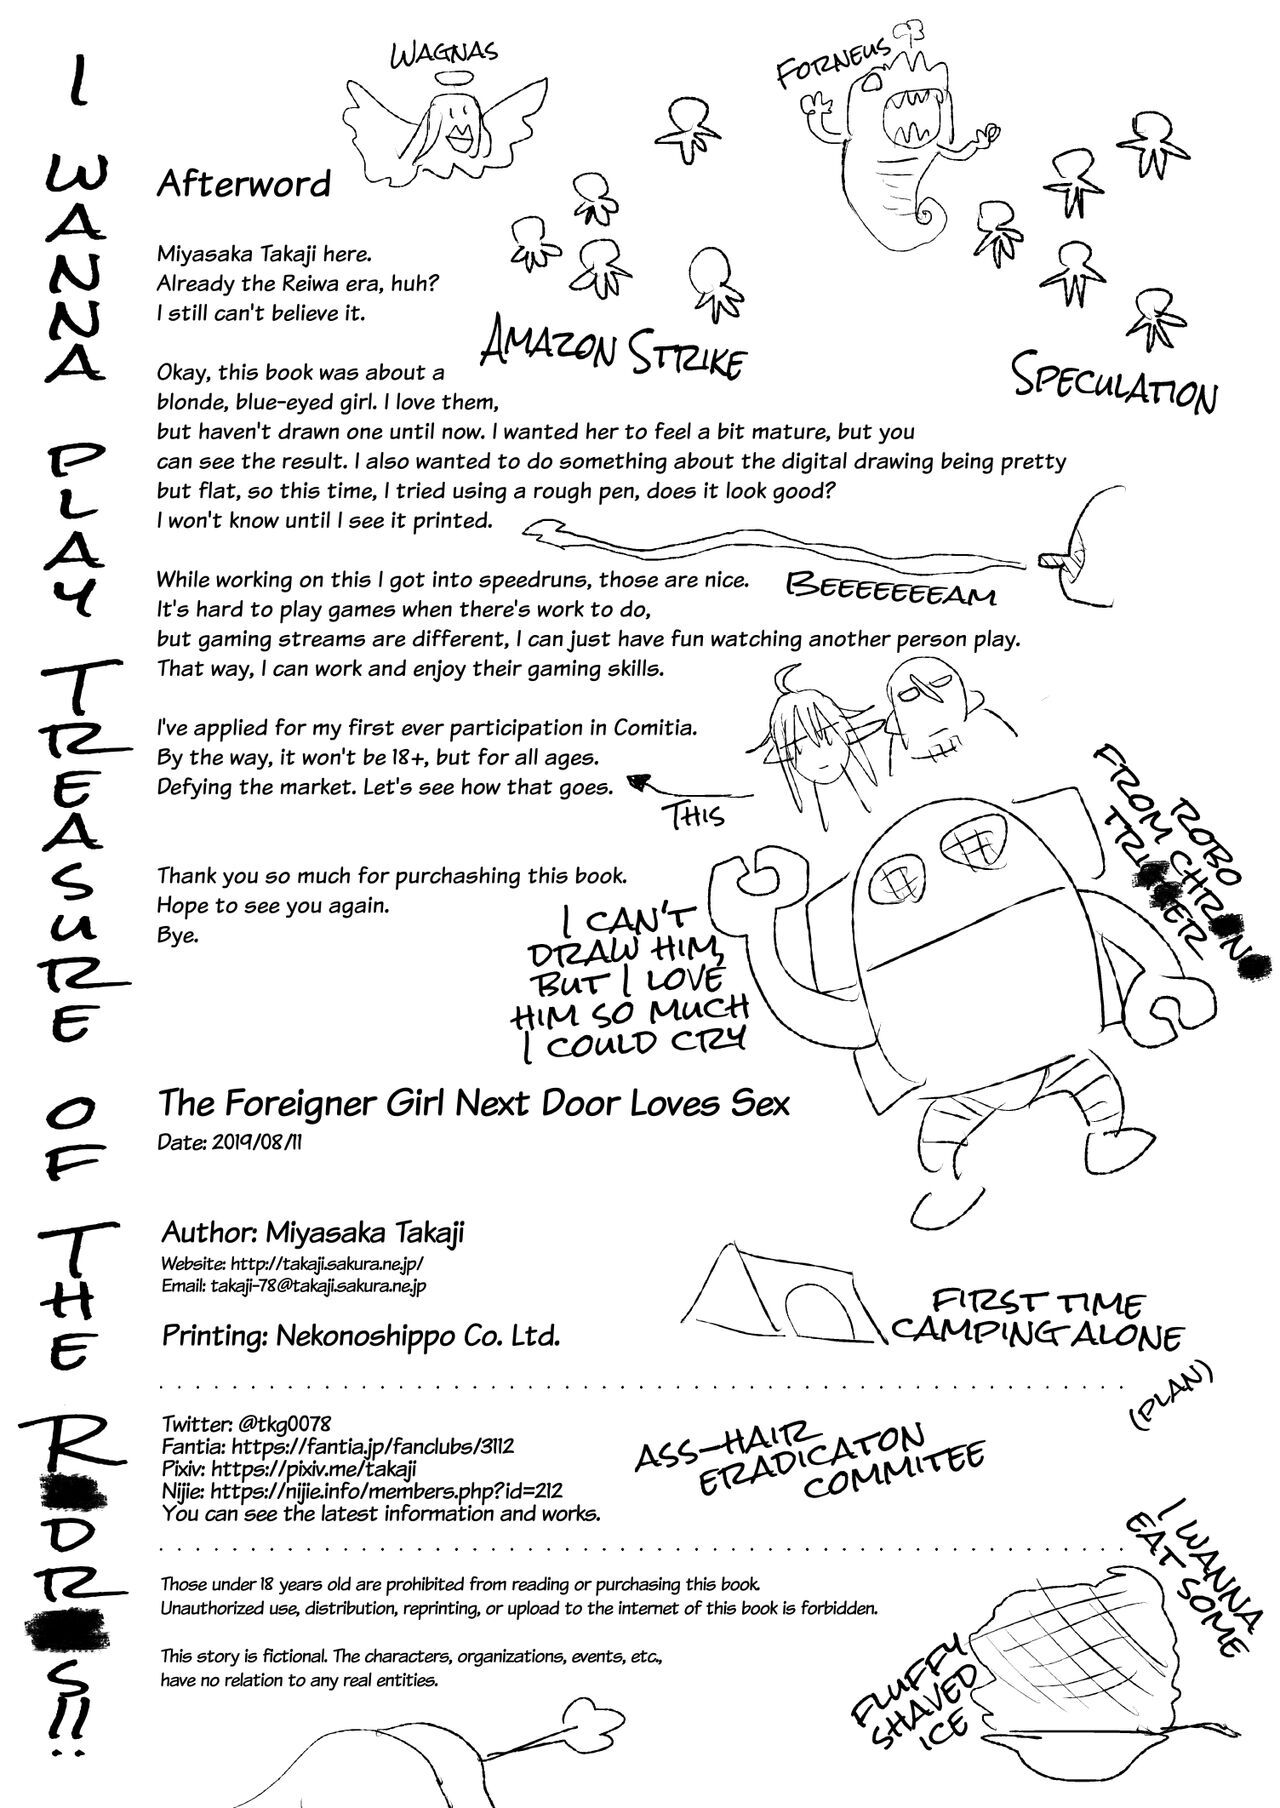 I WANNA PLAY TREASURE OF THE R■DR■S!!
WAGNAS
FORNEUS
Afterword
Miyasaka Takaji here.
Already the Reiwa era, huh?
I still can't believe it.
AMAZON STRIKE
SPECULATION
Okay, this book was about a
blonde, blue-eyed girl. I love them,
but haven't drawn one until now. I wanted her to feel a bit mature, but you
can see the result. I also wanted to do something about the digital drawing being pretty
but flat, so this time, I tried using a rough pen, does it look good?
I won't know until I see it printed.
BEEEEEEEAM
While working on this I got into speedruns, those are nice.
It's hard to play games when there's work to do,
but gaming streams are different, I can just have fun watching another person play.
That way, I can work and enjoy their gaming skills.
I've applied for my first ever participation in Comitia.
By the way, it won't be 18+, but for all ages.
Defying the market. Let's see how that goes.
THIS
ROBO
FROM CHR■N■
TRI■■ER
Thank you so much for purchashing this book.
Hope to see you again.
Bye.
I CAN'T
DRAW HIM,
BUT I LOVE
HIM SO MUCH
I COULD CRY
The Foreigner Girl Next Door Loves Sex
Date: 2019/08/11
Author: Miyasaka Takaji
Website: http://takaji.sakura.ne.jp/
Email: takaji-78@takaji.sakura.ne.jp
Printing: Nekonoshippo Co. Ltd.
FIRST TIME
CAMPING ALONE
(PLAN)
Twitter: @tkg0078
Fantia: https://fantia.jp/fanclubs/3112
Pixiv: https://pixiv.me/takaji
Nijie: https://nijie.info/members.php?id=212
You can see the latest information and works.
ASS-HAIR
ERADICATON
COMMITEE
Those under 18 years old are prohibited from reading or purchasing this book.
Unauthorized use, distribution, reprinting, or upload to the internet of this book is forbidden.
This story is fictional. The characters, organizations, events, etc.,
have no relation to any real entities.
I WANNA
EAT SOME
FLUFFY
SHAVED
ICE